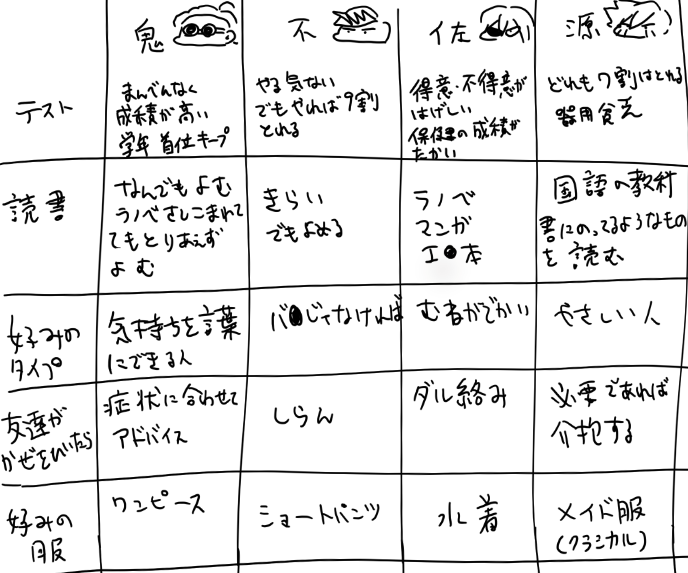 鬼 不 伊左 源
テスト
まんべんなく
成績が高い
学年首位キープ
やる気ない
でもやれば9割
とれる
得意・不得意が
はげしい
保健の成績が
たかい
どれも7割はとれる
器用貧乏
読書
なんでもよむ
ラノベさしこまれて
てもとりあえず
よむ
きらい
でもよめる
ラノベ
マンガ
エ●本
国語の教科
書にのってるようなもの
を読む
好みの
タイプ
気持ちを言葉
にできる人
バ●じゃなければ
むねがでかい
やさしい人
友達が
かぜをひいたら
症状に合わせて
アドバイス
しらん
ダル絡み
必要であれば
介抱する
好みの
服
ワンピース
ショートパンツ
水着
メイド服
(クラシカル)